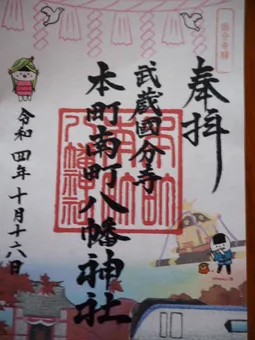 奉拝
武蔵國分寺
本町南町八幡神社
令和四年十月十六日